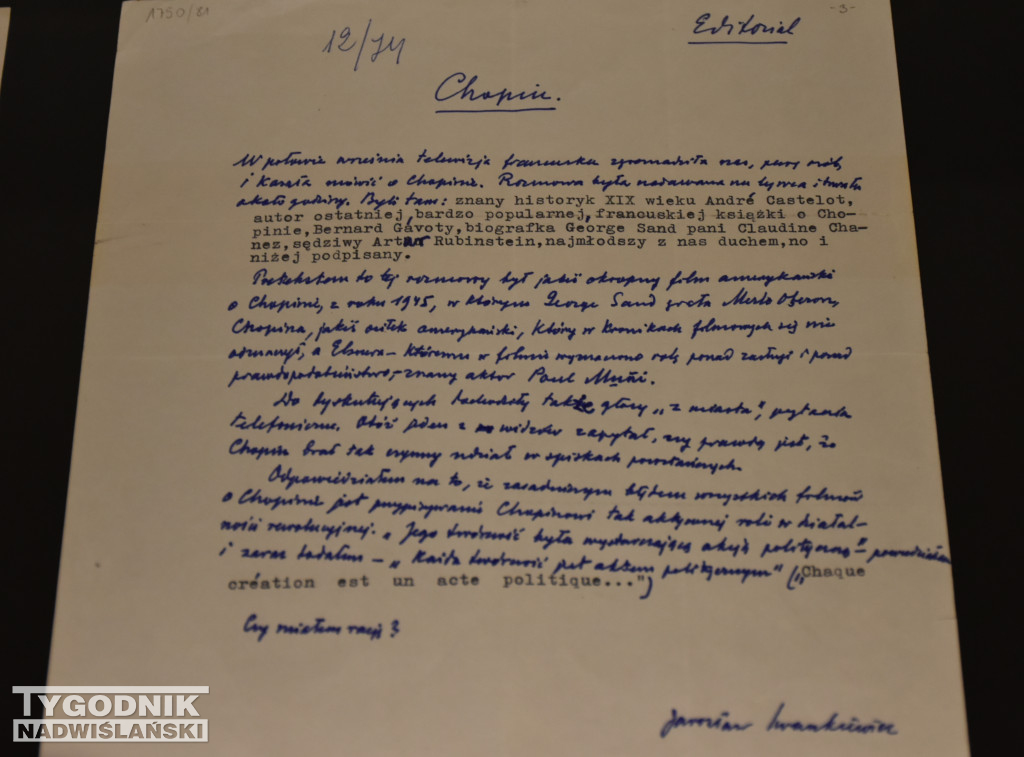 1790/81
-3-
12/74
Editorial
Chopin.
W połowie września telewizja francuska zgromadziła nas, parę osób,
i kazała mówić o Chopinie. Rozmowa była nadawana na żywca i trwała
około godziny. Byli tam: znany historyk XIX wieku André Castelot,
autor ostatniej, bardzo popularnej, francuskiej książki o Cho-
pinie, Bernard Gavoty, biografka George Sand pani Claudine Cha-
nez, sędziwy Artur Rubinstein, najmłodszy z nas duchem, no i
niżej podpisany.
Pretekstem do tej rozmowy był jakiś okropny film amerykański
o Chopinie, z roku 1945, w którym George Sand grała Merle Oberon,
Chopina, jakiś osiłek amerykański, który w kronikach filmowych się nie
odznaczył, a Elsnera – któremu w filmie wyznaczono rolę ponad zasługi i ponad
prawdopodobieństwo, – znany aktor Paul Muni.
Do dyskutujących dochodziły także głosy „z miasta”, pytania
telefoniczne. Otóż jeden z widzów zapytał, czy prawdą jest, że
Chopin brał tak czynny udział w spiskach powstańczych.
Odpowiedziałem na to, że zasadniczym błędem wszystkich filmów
o Chopinie jest przypisywanie Chopinowi tak aktywnej roli w działal-
ności rewolucyjnej. „Jego twórczość była wystarczającą akcją polityczną” – powiedziałem
i zaraz dodałem – „Każda twórczość jest aktem politycznym” („Chaque
création est un acte politique...")
Czy miałem rację?
Jarosław Iwaszkiewicz
TYGODNIK
NADWIŚLAŃSKI